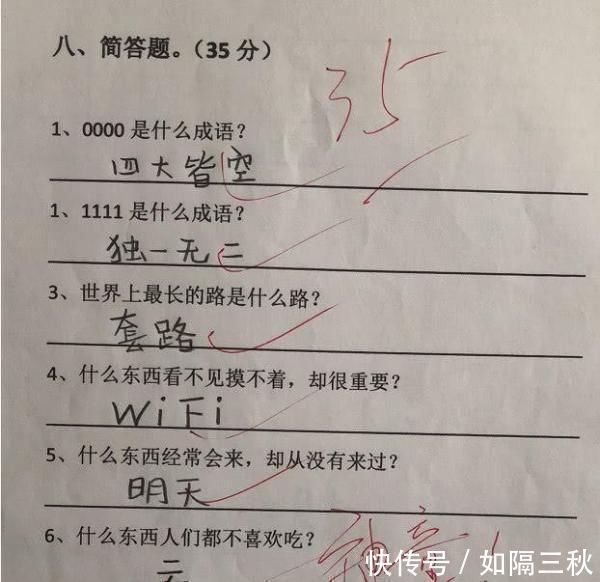 八、简答题。（35 分）
35
1、0000 是什么成语？
四大皆空
1、1111 是什么成语？
独一无二
3、世界上最长的路是什么路？
套路
4、什么东西看不见摸不着，却很重要？
WiFi
5、什么东西经常会来，却从没有来过？
明天
6、什么东西人们都不喜欢吃？
快传号 / 如隔三秋